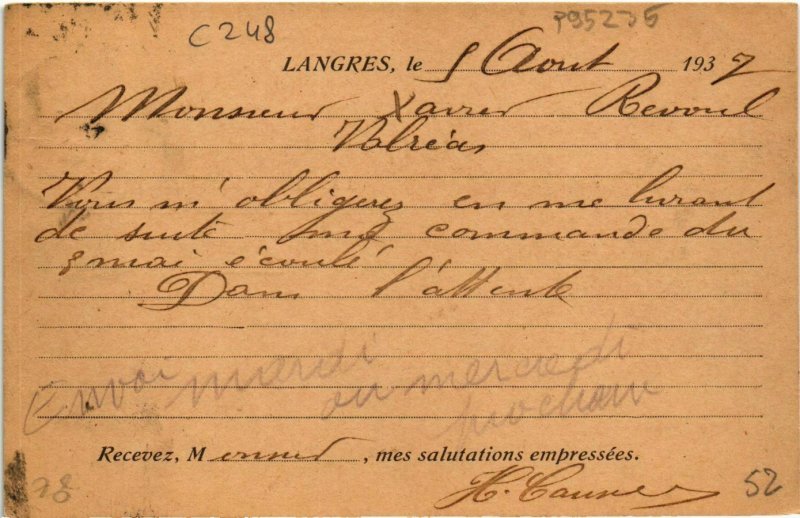 C248
P95235
LANGRES, le 5 Aout 1937
Monsieur Xavier Revoul
Valréas
Vous m'obligerez en me livrant
de suite ma commande du
3 mai écoulé
Dans l'attente
Envoi mardi
ou mercredi
prochain
Recevez, Monsieur, mes salutations empressées.
H.
52